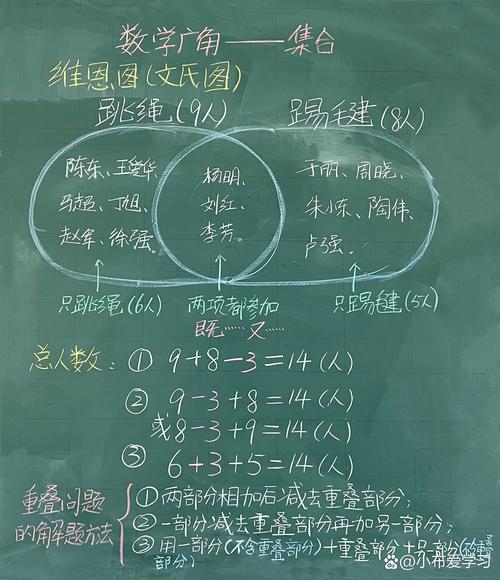 数学广角——集合
维恩图(文氏图)
跳绳(9人) 踢毛建(8人)
陈东、王爱华、 杨明、 于丽、周晓、
马超、丁旭、 刘红、 朱小东、陶伟、
赵军、徐强。 李芳。 卢强。
只跳绳(6人) 两项都参加 只踢毽(5人)
既……又……
总人数: ① 9+8-3=14(人)
② 9-3+8=14(人)
或8-3+9=14(人)
③ 6+3+5=14(人)
重叠问题
的解题方法
①两部分相加后减去重叠部分;
②一部分减去重叠部分再加另一部分;
③用一部分(不含重叠部分)+重叠部分+另一部分
部分)
小布爱学习